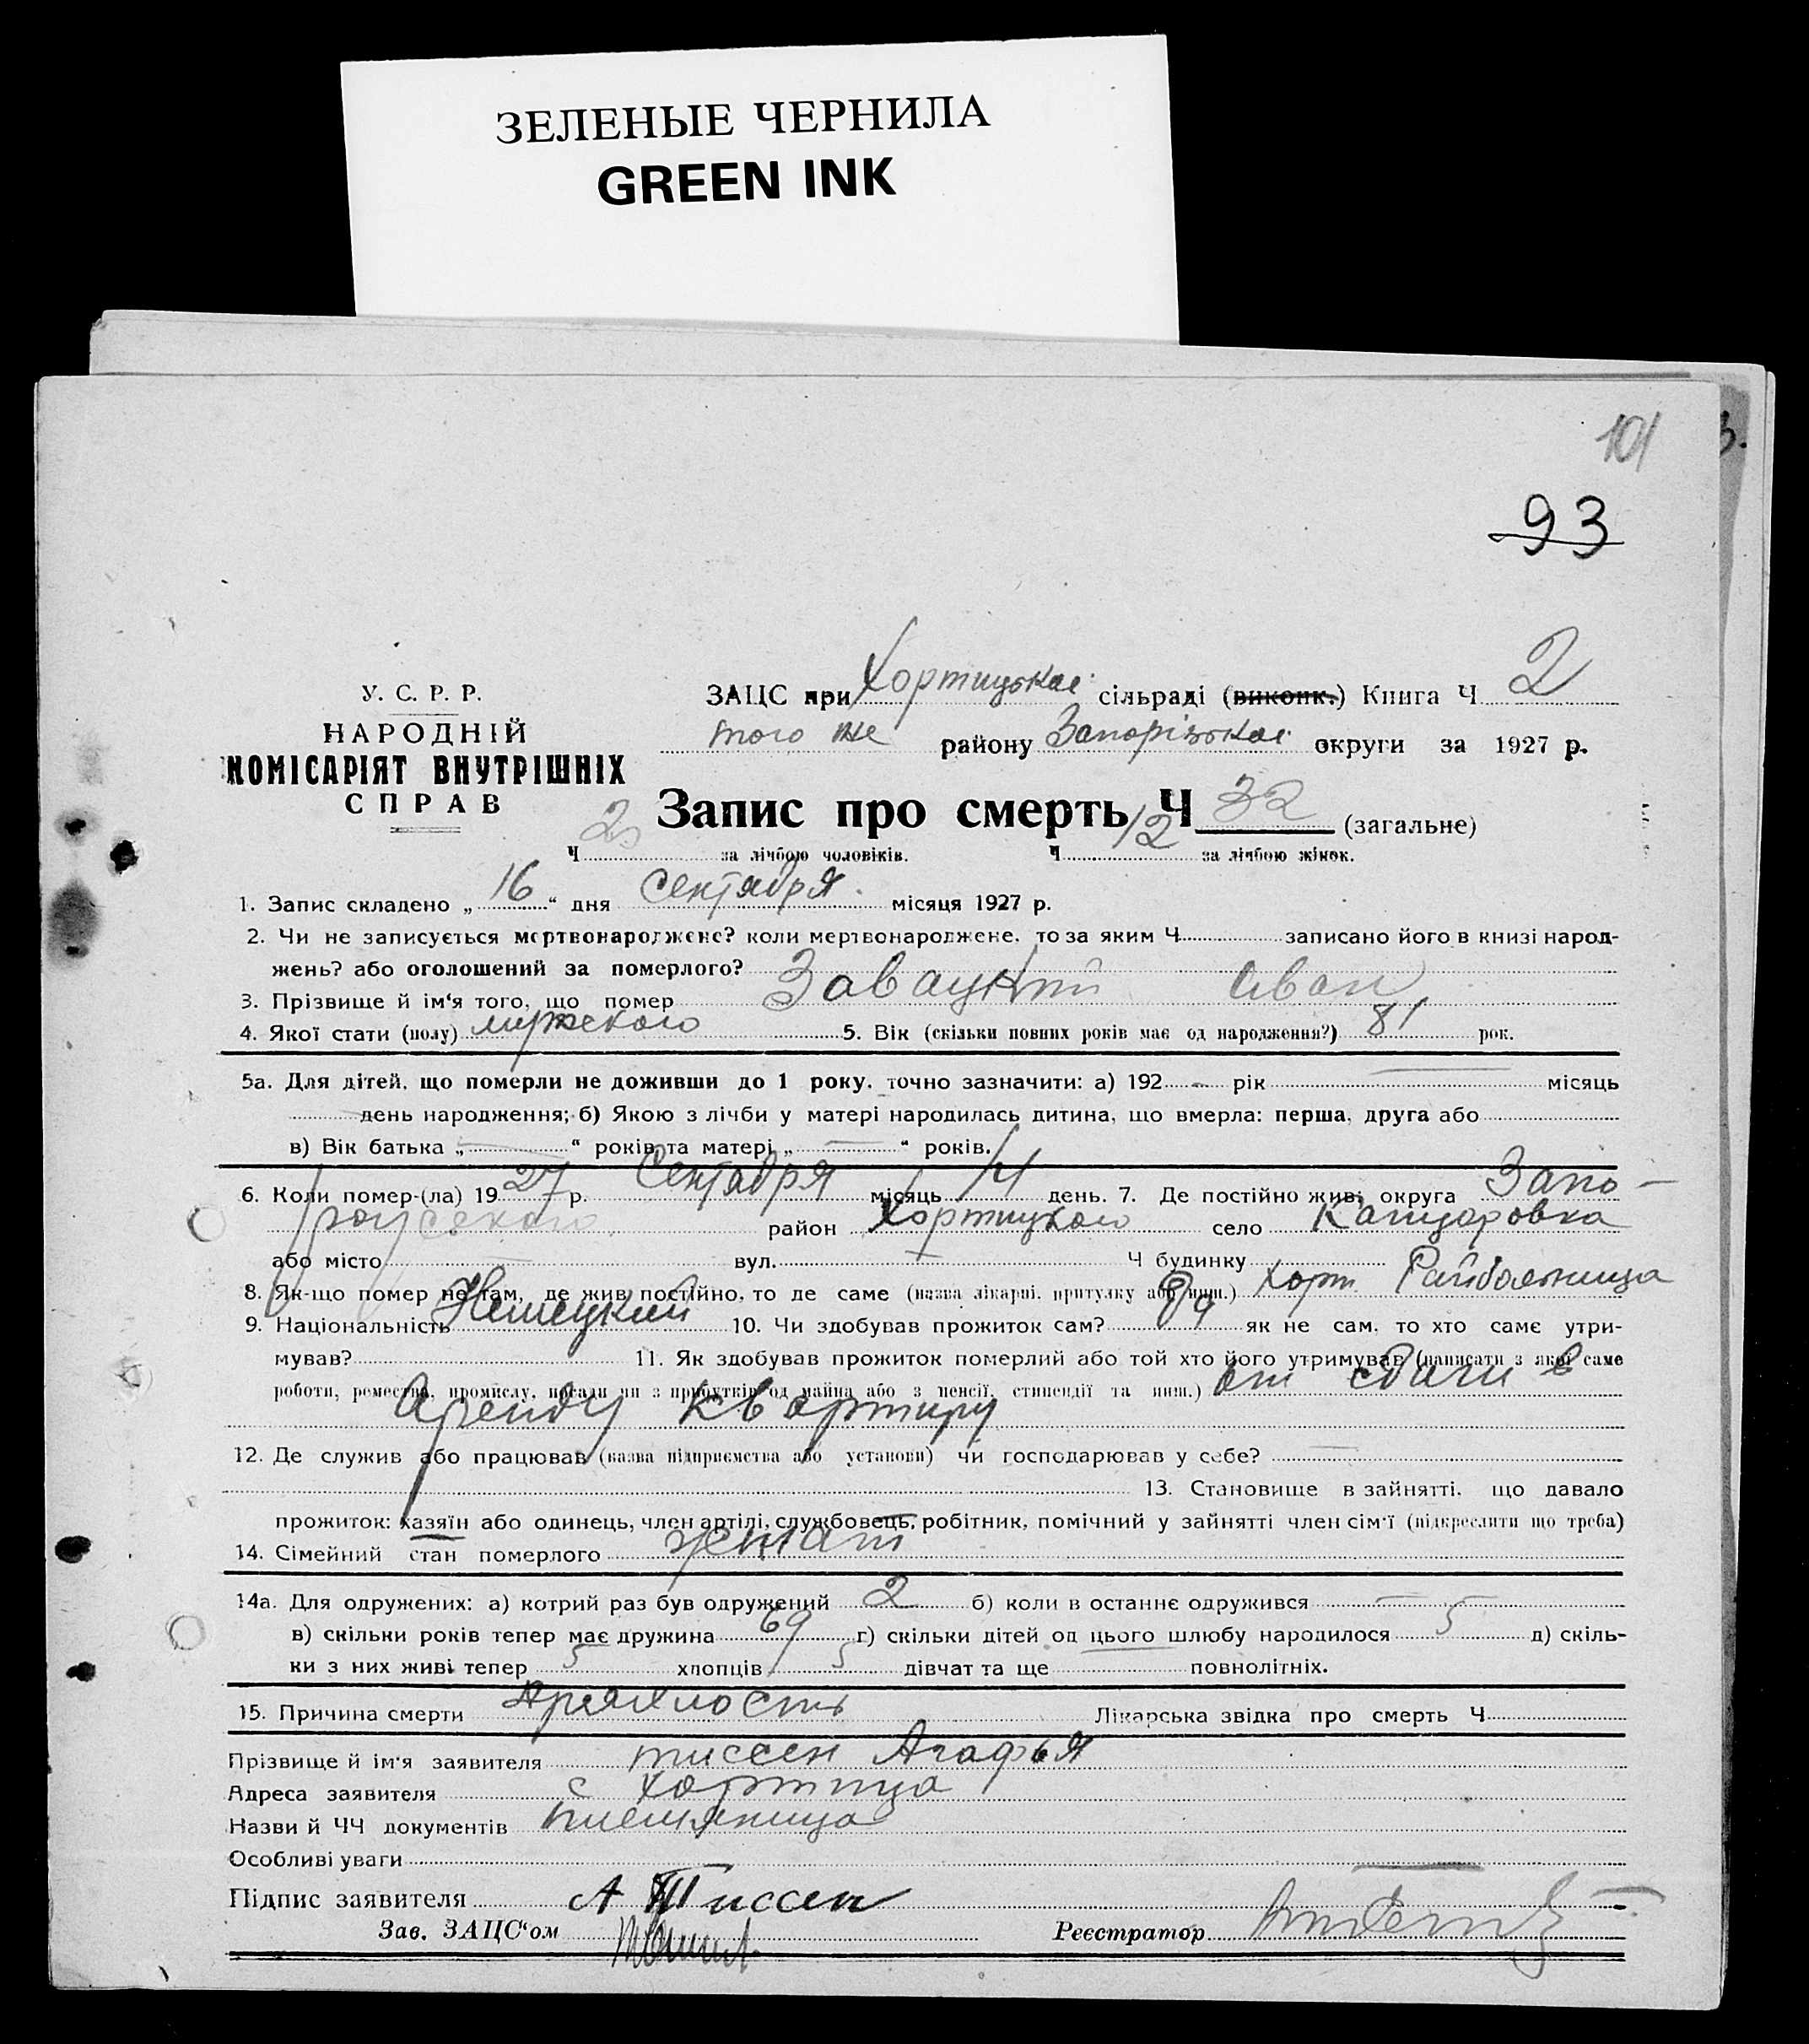 ЗЕЛЕНЫЕ ЧЕРНИЛА
GREEN INK
101
93
У. С. Р. Р.
НАРОДНІЙ
КОМІСАРІЯТ ВНУТРІШНІХ
СПРАВ
ЗАЦС при Хортицької сільраді (виконк.) Книга Ч 2
того же району Запорізької округи за 1927 р.
Запис про смерть Ч 32 (загальне)
Ч 20 за лічбою чоловіків. Ч 12 за лічбою жінок.
1. Запис складено „16“ дня Сентября місяця 1927 р.
2. Чи не записується мертвонароджене? коли мертвонароджене, то за яким Ч записано його в книзі народ-
жень? або оголошений за померлого?
3. Прізвище й ім'я того, що помер Завацкий Иван
4. Якої стати (полу) мужского 5. Вік (скільки повних років має од народження?) 81 рок.
5а. Для дітей, що померли не доживши до 1 року, точно зазначити: а) 192 — рік — місяць
день народження; б) Якою з лічби у матері народилась дитина, що вмерла: перша, друга або
в) Вік батька „—“ років та матері „—“ років.
6. Коли помер-(ла) 1927 р. Сентября місяць 14 день. 7. Де постійно живі округа Запо-
рожского район Хортицкого село Канцаровка
або місто вул. — Ч будинку
8. Як-що помер не там, де жив постійно, то де саме (назва лікарні, притулку або инш.) Хорт. Райбольница
9. Національність Немецкий 10. Чи здобував прожиток сам? Да як не сам, то хто саме утри-
мував? 11. Як здобував прожиток померлий або той хто його утримував (написати з якої саме
роботи, ремества, промислу, посади чи з прибутків од майна або з пенсії, стипендії та инш.) от сдачи в
Аренду квартиру
12. Де служив або працював (назва підприємства або установи) чи господарював у себе? —
13. Становище в зайнятті, що давало
прожиток: хазяїн або одинець, член артілі, службовець, робітник, помічний у зайнятті член сім'ї (підкреслити що треба)
14. Сімейний стан померлого женат
14а. Для одружених: а) котрий раз був одружений 2 б) коли в останнє одружився —
в) скільки років тепер має дружина 69 г) скільки дітей од цього шлюбу народилося 5 д) скіль-
ки з них живі тепер 5 хлопців 5 дівчат та ще повнолітніх.
15. Причина смерти Дряхлость Лікарська звідка про смерть Ч
Прізвище й ім'я заявителя Тиссен Агафья
Адреса заявителя с Хортица
Назви й ЧЧ документів племяница
Особливі уваги —
Підпис заявителя А Тиссен
Зав. ЗАЦС'ом Реєстратор